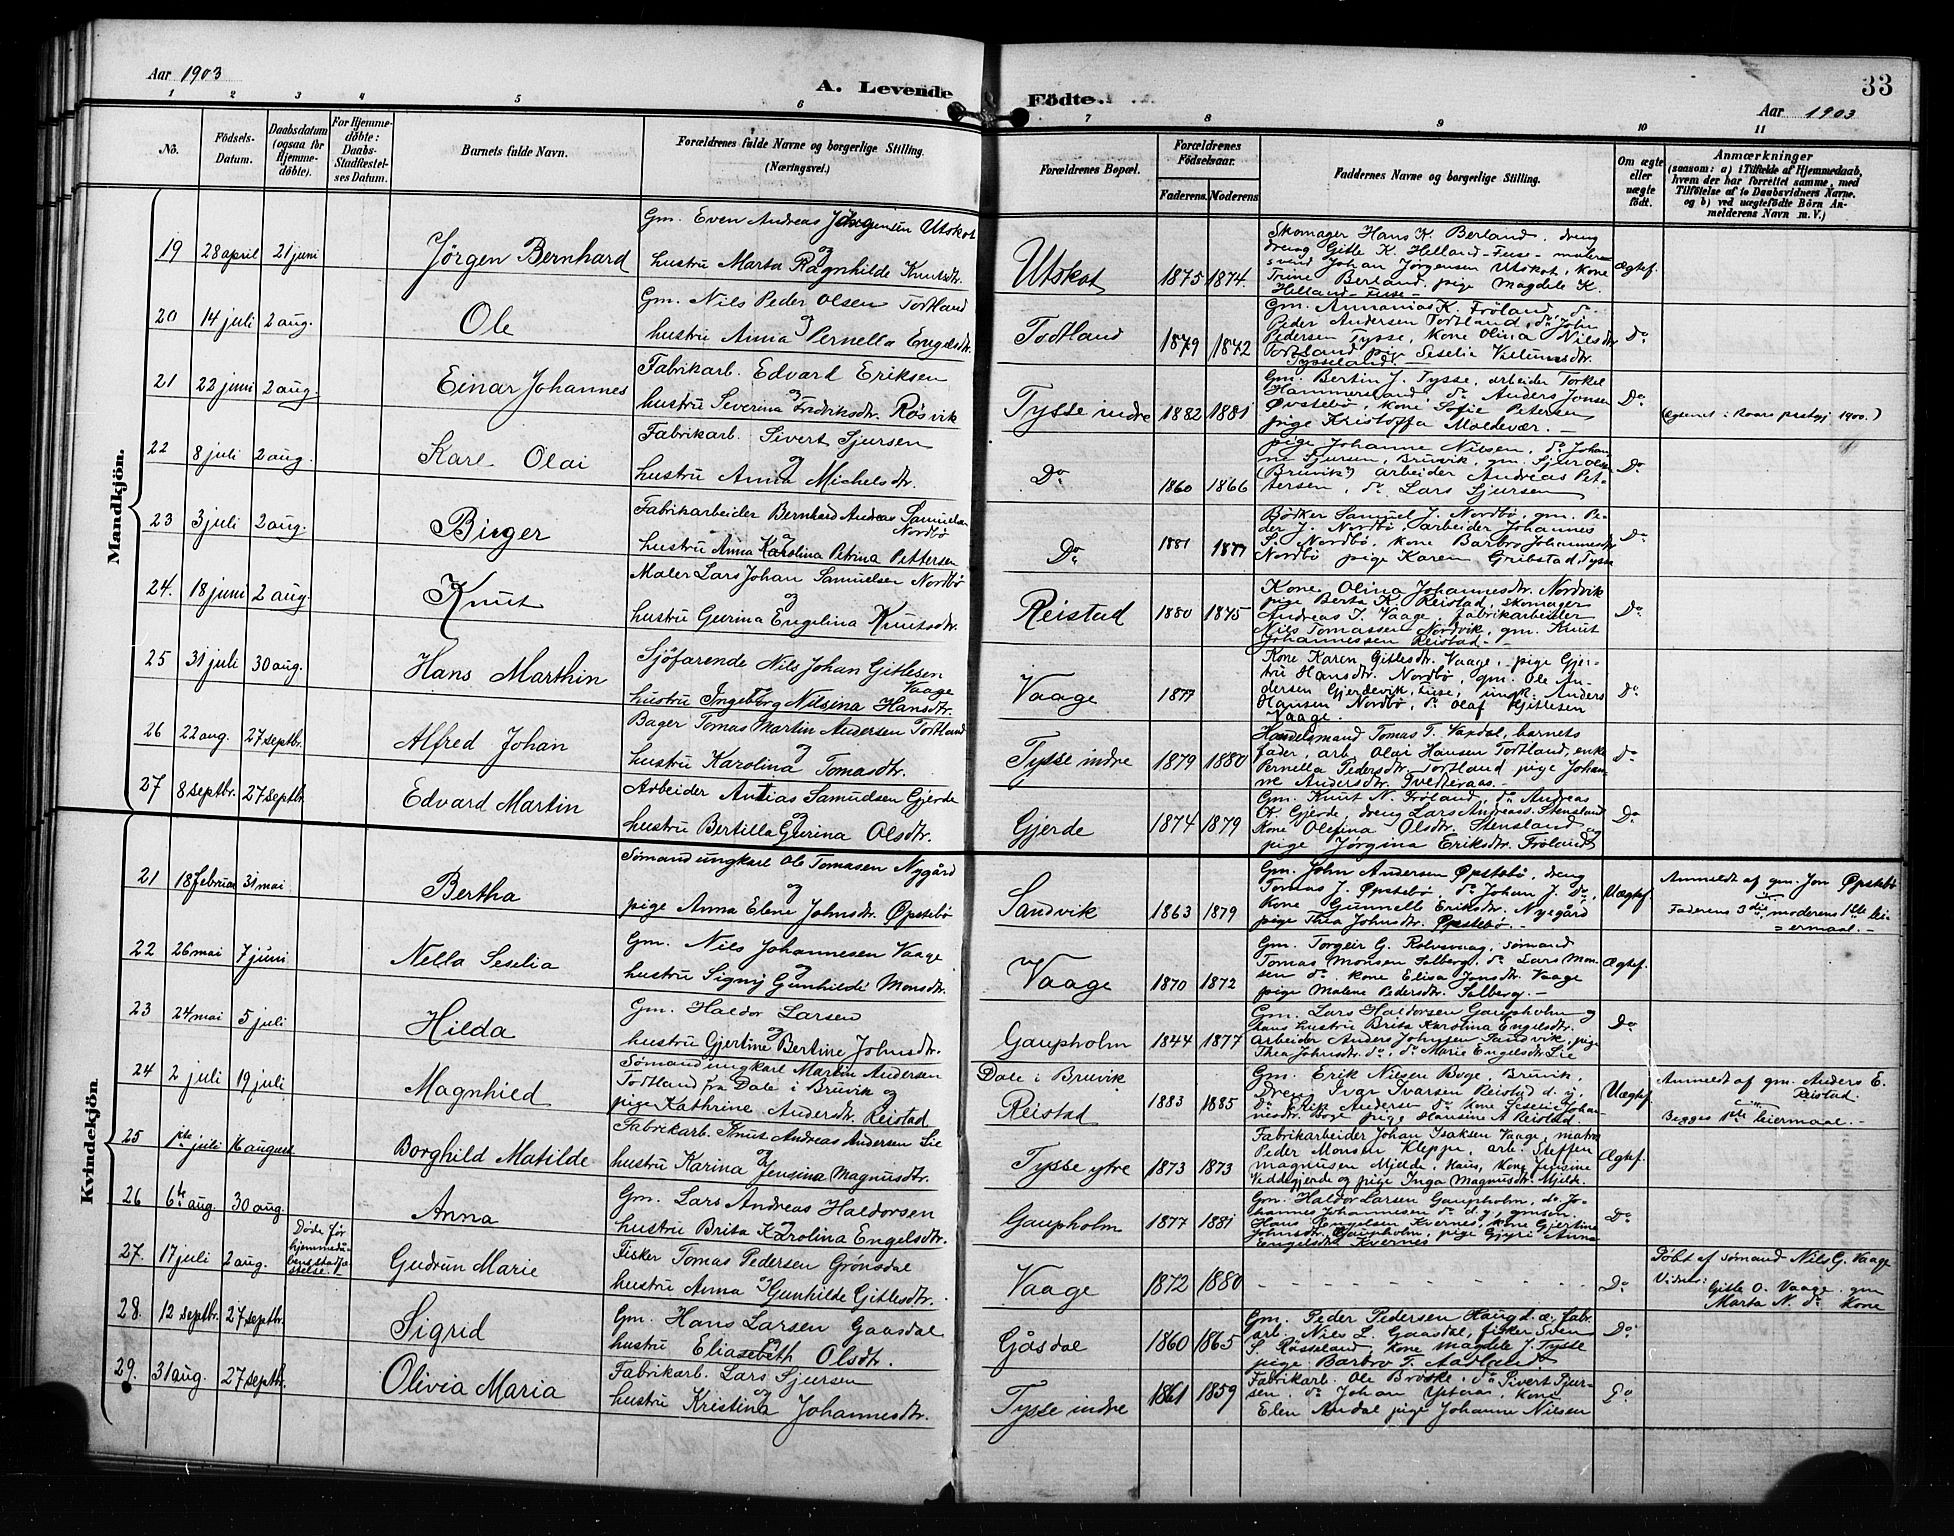 Aar 1903
A. Levende Födte.
33
Aar 1903
1 2 3 4 5 6 7 8 9 10 11
No.
Födsels-
Datum.
Daabsdatum
(ogsaa for
Hjemme-
döbte).
For Hjemme-
döbte:
Daabs-
Stadfæstel-
ses Datum.
Barnets fulde Navn.
Forældrenes fulde Navne og borgerlige Stilling.
(Næringsvei.)
Forældrenes Bopæl.
Forældrenes
Födselsaar.
Faderens. Moderens.
Faddernes Navne og borgerlige Stilling.
Om ægte
eller
uægte
födt.
Anmærkninger
(saasom: a) i Tilfælde af Hjemmedaab,
hvem der har forrettet samme, med
Tilföielse af to Daabsvidners Navne.
og b) ved uægtefödte Börn An-
melderens Navn m. V.)
Mandkjön.
19 28 april 21 juni
Jörgen Bernhard
Gm. Even Andreas Jörgensen Utskot
og
hustru Marta Ragnhilde Knutsdtr.
Utskot
1875 1874
Skomager Hans K. Berland, dreng
dreng Gitle K. Helland - Fuse - maler
svend Johan Jörgensen Utskot, kone
Trine Berland, pige Magdele K.
Helland - Fuse -
Ægtef.
20 14 juli 2 aug.
Ole
Gm. Nils Peder Olsen Tortland
og
hustru Anna Pernella Engelsdtr.
Tortland
1879 1842
Gm. Annanias K. Fröland, do
Peder Andersen Tortland, do John
Pedersen Tysse, kone Olina Nilsdtr
Tortland pige Seselia Villumsdtr.
Tysseland
Do
21 22 juni 2 aug.
Einar Johannes
Fabrikarb. Edvard Eriksen
og
hustru Severina Fredriksdtr. Rösvik
Tysse indre
1882 1881
Gm. Bertin J. Tysse, arbeider Torkel
Hammersland, do Anders Jonsen
Øvstebö, kone Sofie Petersen
pige Kristoffa Moldevær. -
Do
22 8 juli 2 aug.
Karl Olai
Fabrikarb. Sivert Sjursen
og
hustru Anna Michelsdtr.
Do
1860 1866
pige Johanne Nilsen, do Johan-
ne Sjursen, Bruvik, gm. Sjur Olsen
(Bruvik) arbeider Andreas Pet-
tersen, do Lars Sjursen
Do
23 3 juli 2 aug.
Birger
Fabrikarbeider Bernhard Andreas Samuelsen
Nordbö
og
hustru Anna Karolina Petrina Pettersen
Do
1881 1877
Bödker Samuel J. Nordbö, gm. Pe-
der J. Nordbö, arbeider Johannes
S. Nordbö, kone Barbro Johannesdtr
Nordbö pige Karen Gribstad, Tysse
Do
24. 18 juni 2 aug.
Knut
Maler Lars Johan Samuelsen Nordbö
og
hustru Gurina Engelina Knutsdtr.
Reistad
1880 1875
Kone Olina Johannesdtr. Nordvik
pige Berta K. Reistad, skomager
Andreas T. Vaage fabrikarbeider
Nils Tomassen Nordvik, gm. Knut
Johannessen Reistad. -
Do
25 31 juli 30 aug.
Hans Marthin
Sjöfarende Nils Johan Gitlesen
Vaage
hustru Ingeborg Nilsina Hansdtr.
Vaage
1877
Kone Karen Gitlesdtr. Vaage, pige Gjer-
tru Hansdtr. Nordbö, gm. Ole An-
dersen Gjerdevik, Fuse, ungk. Anders
Hansen Nordbö, do Olaf Gitlesen
Vaage.
Do
26 22 aug. 27 septbr.
Alfred Johan
Bager Tomas Martin Andersen Tortland
og
hustru Karolina Tomasdtr.
Tysse indre
1879 1880
Handelsmand Tomas T. Vaxdal, barnets
fader, arb. Olai Hansen Tortland, enke
Pernella Pedersdtr. Tortland pige Johan-
ne Andersdtr. Tvedteraas.
Do
27 8 septbr. 27 septbr.
Edvard Martin
Arbeider Antias Samuelsen Gjerde
og
hustru Bertilla Gurina Olsdtr.
Gjerde
1874 1879
Gm. Knut N. Fröland, do Andreas
O. Gjerde, dreng Lars Andreass. Stensland
kone Olefina Olsdtr. Stensland og
pige Jörgina Eriksdtr. Fröland
Do
Kvindekjön.
21 18 februar 31 mai
Bertha
Sömand ungkarl Ole Tomasen Nygård
og
pige Anna Elene Johnsdtr. Øpstebö
Sandvik
1863 1879
Gm. John Andersen Øpstebö, dreng
Tomas J. Øpstebö, do Johan J. Do,
kone Gunnell Eriksdtr. Nygård
pige Thea Johnsdtr. Øpstebö. -
Uægtef.
Anmeldt af gm. Jon Øpstebö
Faderens 3die, moderens 1ste lei-
ermaal. -
22 26 mai 7 juni
Nella Seselia
Gm. Nils Johannesen Vaage
og
hustru Signy Gunhilde Monsdtr.
Vaage
1870 1872
Gm. Torgeir G. Rolvsvaag, sömand
Tomas Monsen Solberg, do Lars Mon-
sen do kone Elisa Jonsdtr. Vaage
pige Malene Pedersdtr. Solberg. -
Ægtef.
23 24 mai 5 juli
Hilda
Gm. Haldor Larsen
og
hustru Gjertine Bertine Johnsdtr.
Gaupholm
1844 1877
Gm. Lars Haldorsen Gaupholm og
hans hustru Brita Karolina Engelsdtr.
arbeider Anders Johnsen Sandvik, pige
Thea Johnsdtr. do, do Marie Engelsdtr. Lie
Do
24 2 juli 19 juli
Magnhild
Sömand ungkarl Martin Andersen
Tortland fra Dale i Bruvik og
pige Kathrine Andersdtr. Reistad
Dale i Bruvik
Reistad
1883 1885
Gm. Erik Nilsen Boge, Bruvik,
Dreng Ivar Ivarsen Reistad d. y.
do Erik Andersen do kone Seselie Johan-
nesdtr. Boge pige Hansine A. Reistad.
Uægtef.
Anmeldt af gm. Anders E.
Reistad.
Begges 1ste leiermaal. -
25 1ste juli 16 august
Borghild Matilde
Fabrikarb. Knut Andreas Andersen Lie
og
hustru Karina Jensina Magnusdtr.
Tysse ytre
1873 1873
Fabrikarbeider Johan Isaksen Vaage, matros
Peder Monsen Kleppe, arb. Steffen
Magnusen Mjelde, Haus, kone Jensine
Veddegjerde og pige Inga Magnusdtr. Mjelde.
Ægtef.
26 6te aug. 30 aug.
Anna
Gm. Lars Andreas Haldorsen
og
hustru Brita Karolina Engelsdtr.
Gaupholm
1877 1881
Gm. Haldor Larsen Gaupholm, do Jo-
hannes Johannesen do d. y., gmsön
Hans Engelsen Kvernes, kone Gjertine
Johnsdtr. Gaupholm, pige Gjyri Anna
Engelsdtr Kvernes
Do
27. 17 juli 2 aug.
Döde för
hjemmedaa-
bens stadfæ-
stelse.
Gudrun Marie
Fisker Tomas Pedersen Grönsdal
og
hustru Anna Gunhilde Gitlesdtr.
Vaage
1872 1880
Do
Döbt af sömand Nils G. Vaage
Vidner:
Gitle O. Vaage, gm
Marta N. do kone
28. 12 septbr. 27 septbr.
Sigrid
Gm. Hans Larsen Gaasdal
og
hustru Eliasebeth Olsdtr.
Gåsdal
1860 1865
Gm. Peder Pedersen Haug d. æ. fabr.
arb. Nils L. Gaasdal, fisker Sven
S. Rösseland, kone Magdele J. Tysse
pige Barbro T. Aadland
Do
29. 31 aug. 27 septbr.
Olivia Maria
Fabrikarb. Lars Sjursen
og
hustru Kristina Johannesdtr.
Tysse indre
1861 1859
Fabrikarb. Ole Bröske, do Sivert Sjur-
sen, do Johan kone
Elen Andal pige Johanne Nilsen
Do